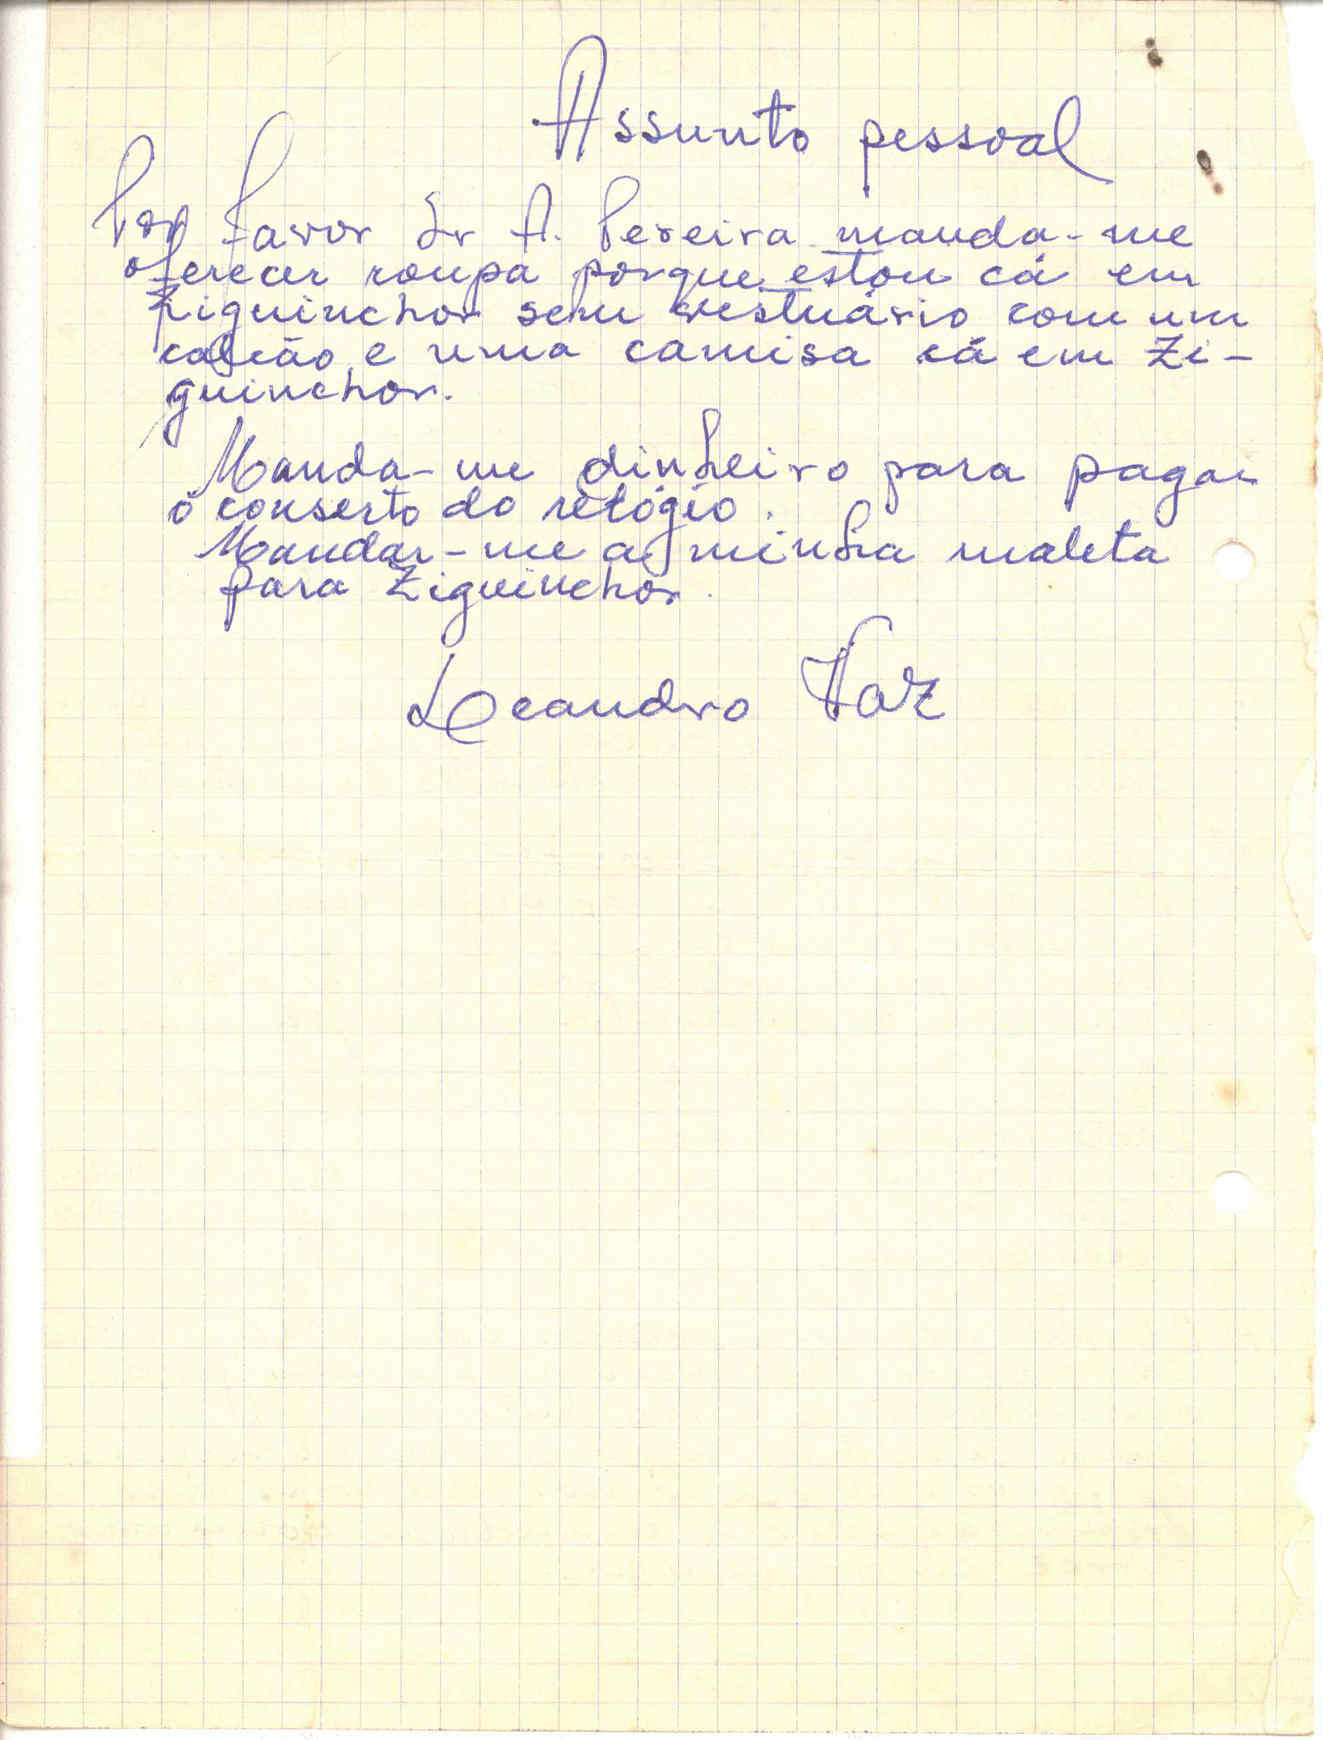 Assunto pessoal
Por favor Sr A. Pereira manda-me
oferecer roupa porque estou cá em
Ziguinchor sem vestuário com um
calção e uma camisa cá em Zi-
guinchor.
Manda-me dinheiro para pagar
o conserto do relógio.
Mandar-me a minha maleta
para Ziguinchor.
Leandro Vaz